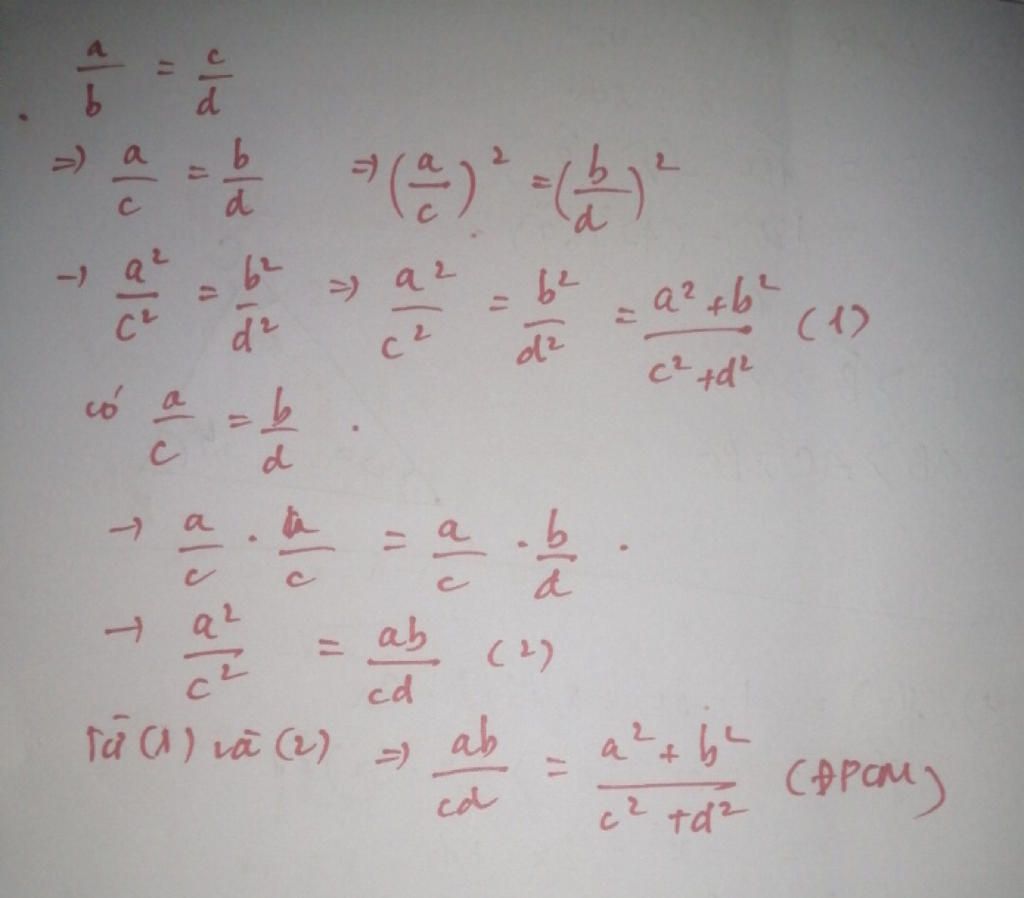 a/b = c/d
⇒ a/c = b/d ⇒ (a/c)² = (b/d)²
→ a²/c² = b²/d² ⇒ a²/c² = b²/d² = (a²+b²)/(c²+d²) (1)
có a/c = b/d .
→ a/c . a/c = a/c . b/d .
→ a²/c² = ab/cd (2)
Từ (1) và (2) ⇒ ab/cd = (a²+b²)/(c²+d²) (ĐPCM)